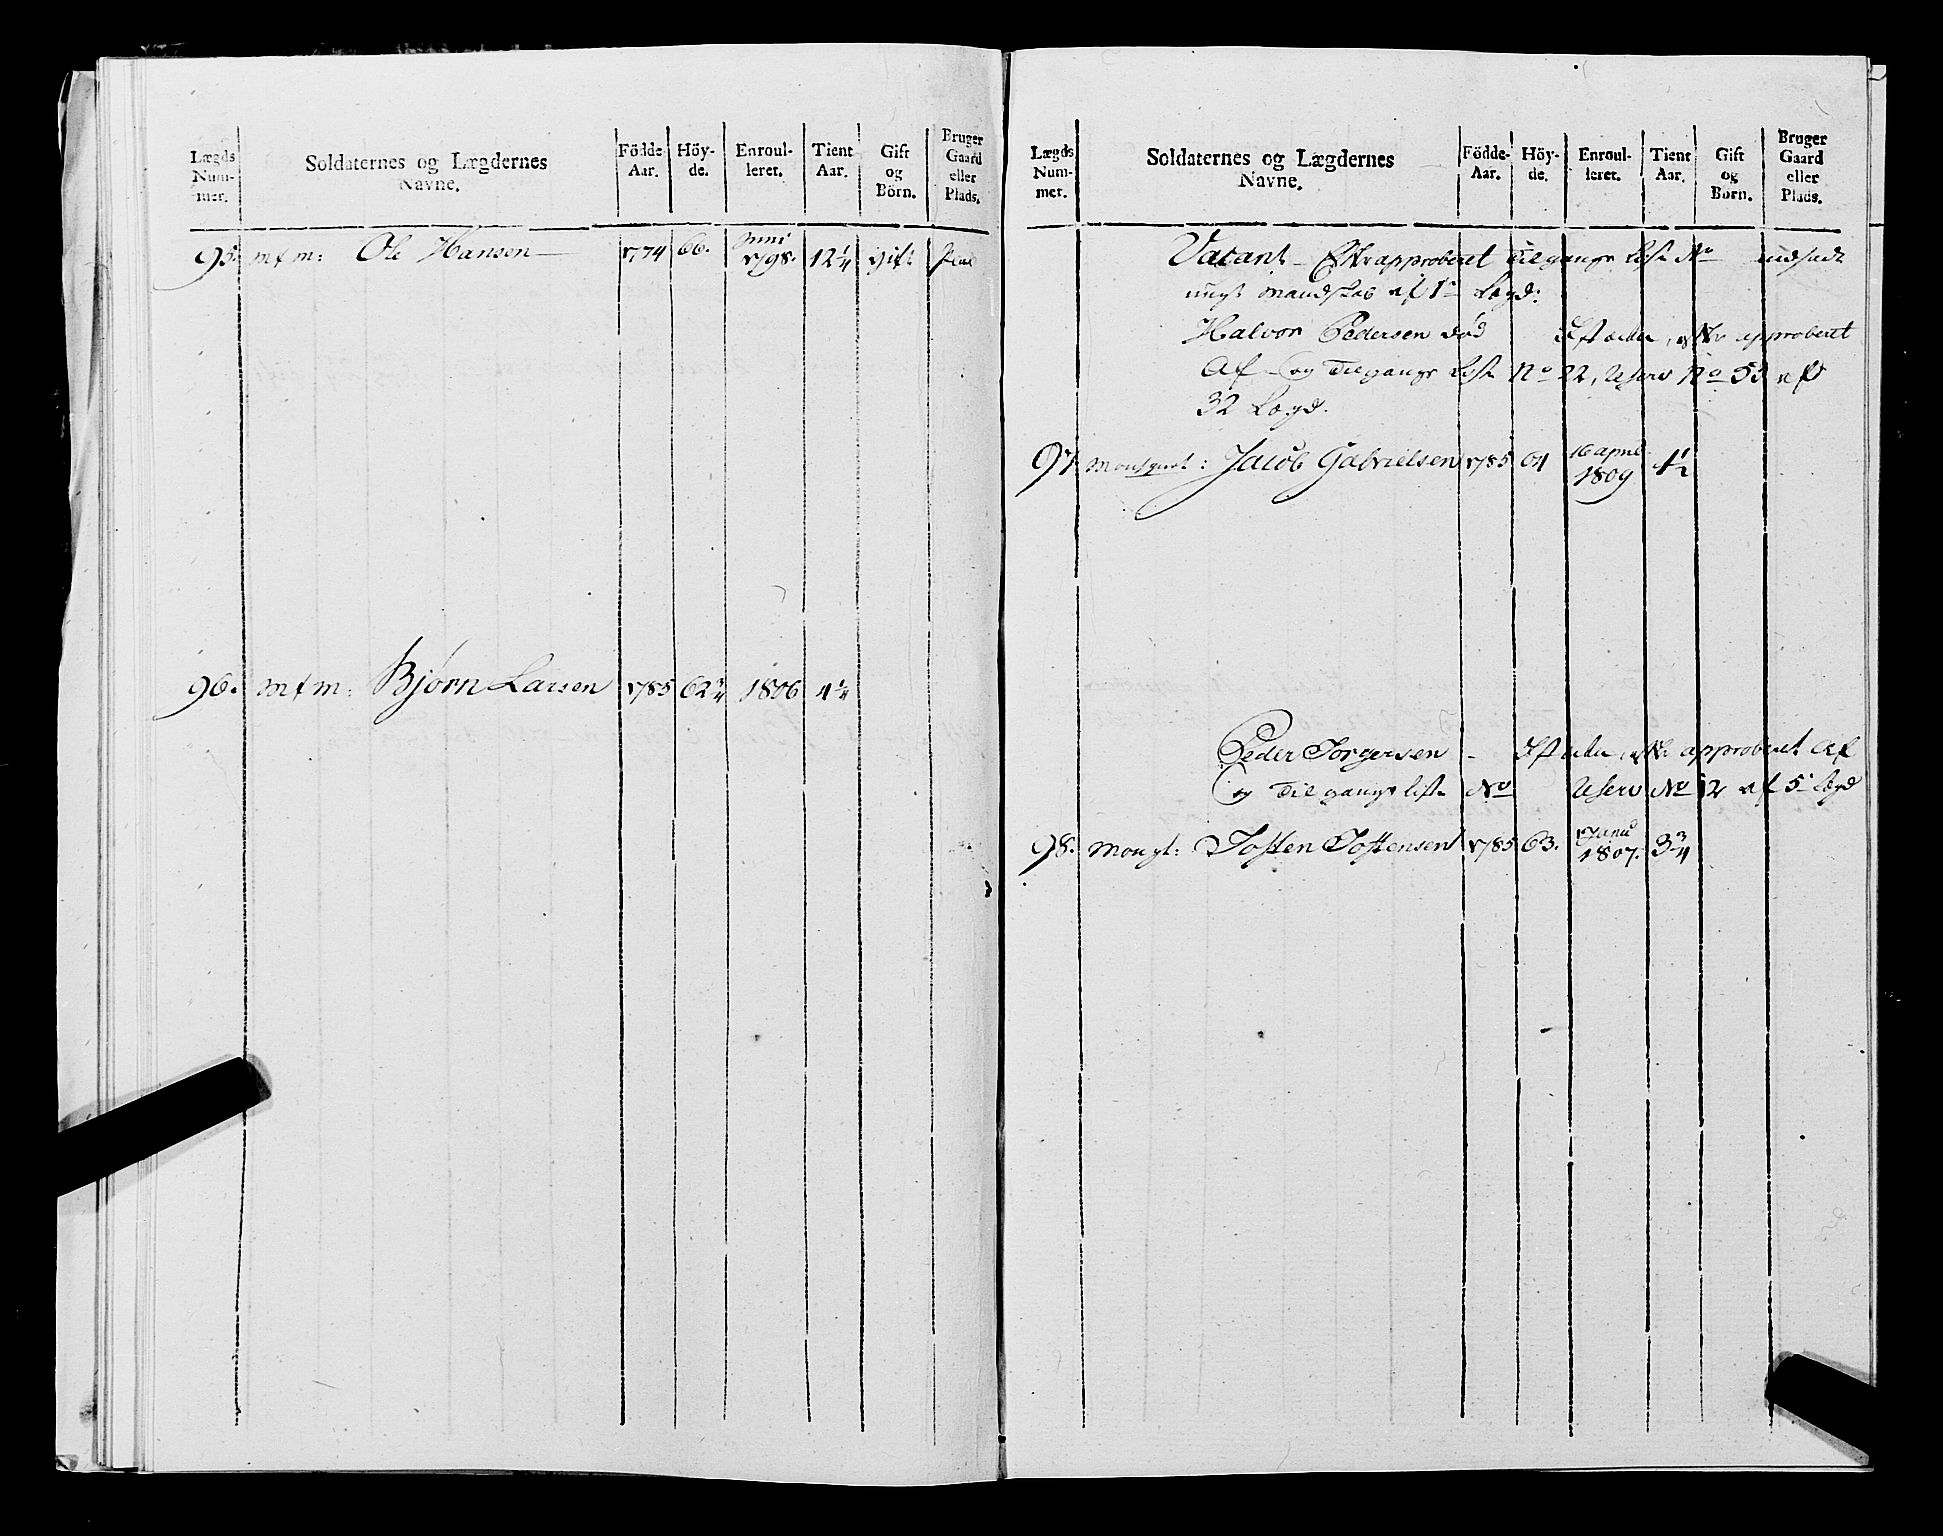 Lægds Num- mer. Soldaternes og Lægdernes Navne. Födde- Aar. Höy- de. Enroul- leret. Tient Aar. Gift og Börn. Bruger Gaard eller Plads.
95. mfm: Ole Hansen 1774 66. 1798. 12 1/4 gift
96. mfm: Bjørn Larsen 1785 62 3/4 1806 4 1/4
Lægds Num- mer. Soldaternes og Lægdernes Navne. Födde- Aar. Höy- de. Enroul- leret. Tient Aar. Gift og Börn. Bruger Gaard eller Plads.
Vacant approberet Tilgangs List No indsadt
ungt Mandskab af 1te Lægd:
Halvor Pedersen død approberet
Af og Tilgangs List No 22, Reserv No 53 af
32 Lægd.
97 Jacob Gabrielsen 1785 64 16 april 1809 1 1/2
Peder Jorgersen approberet Af
og Tilgangs liste No Reserv No 12 af 5te Lægd
98. Tosten Tostensen 1785 63. 1807. 3 3/4